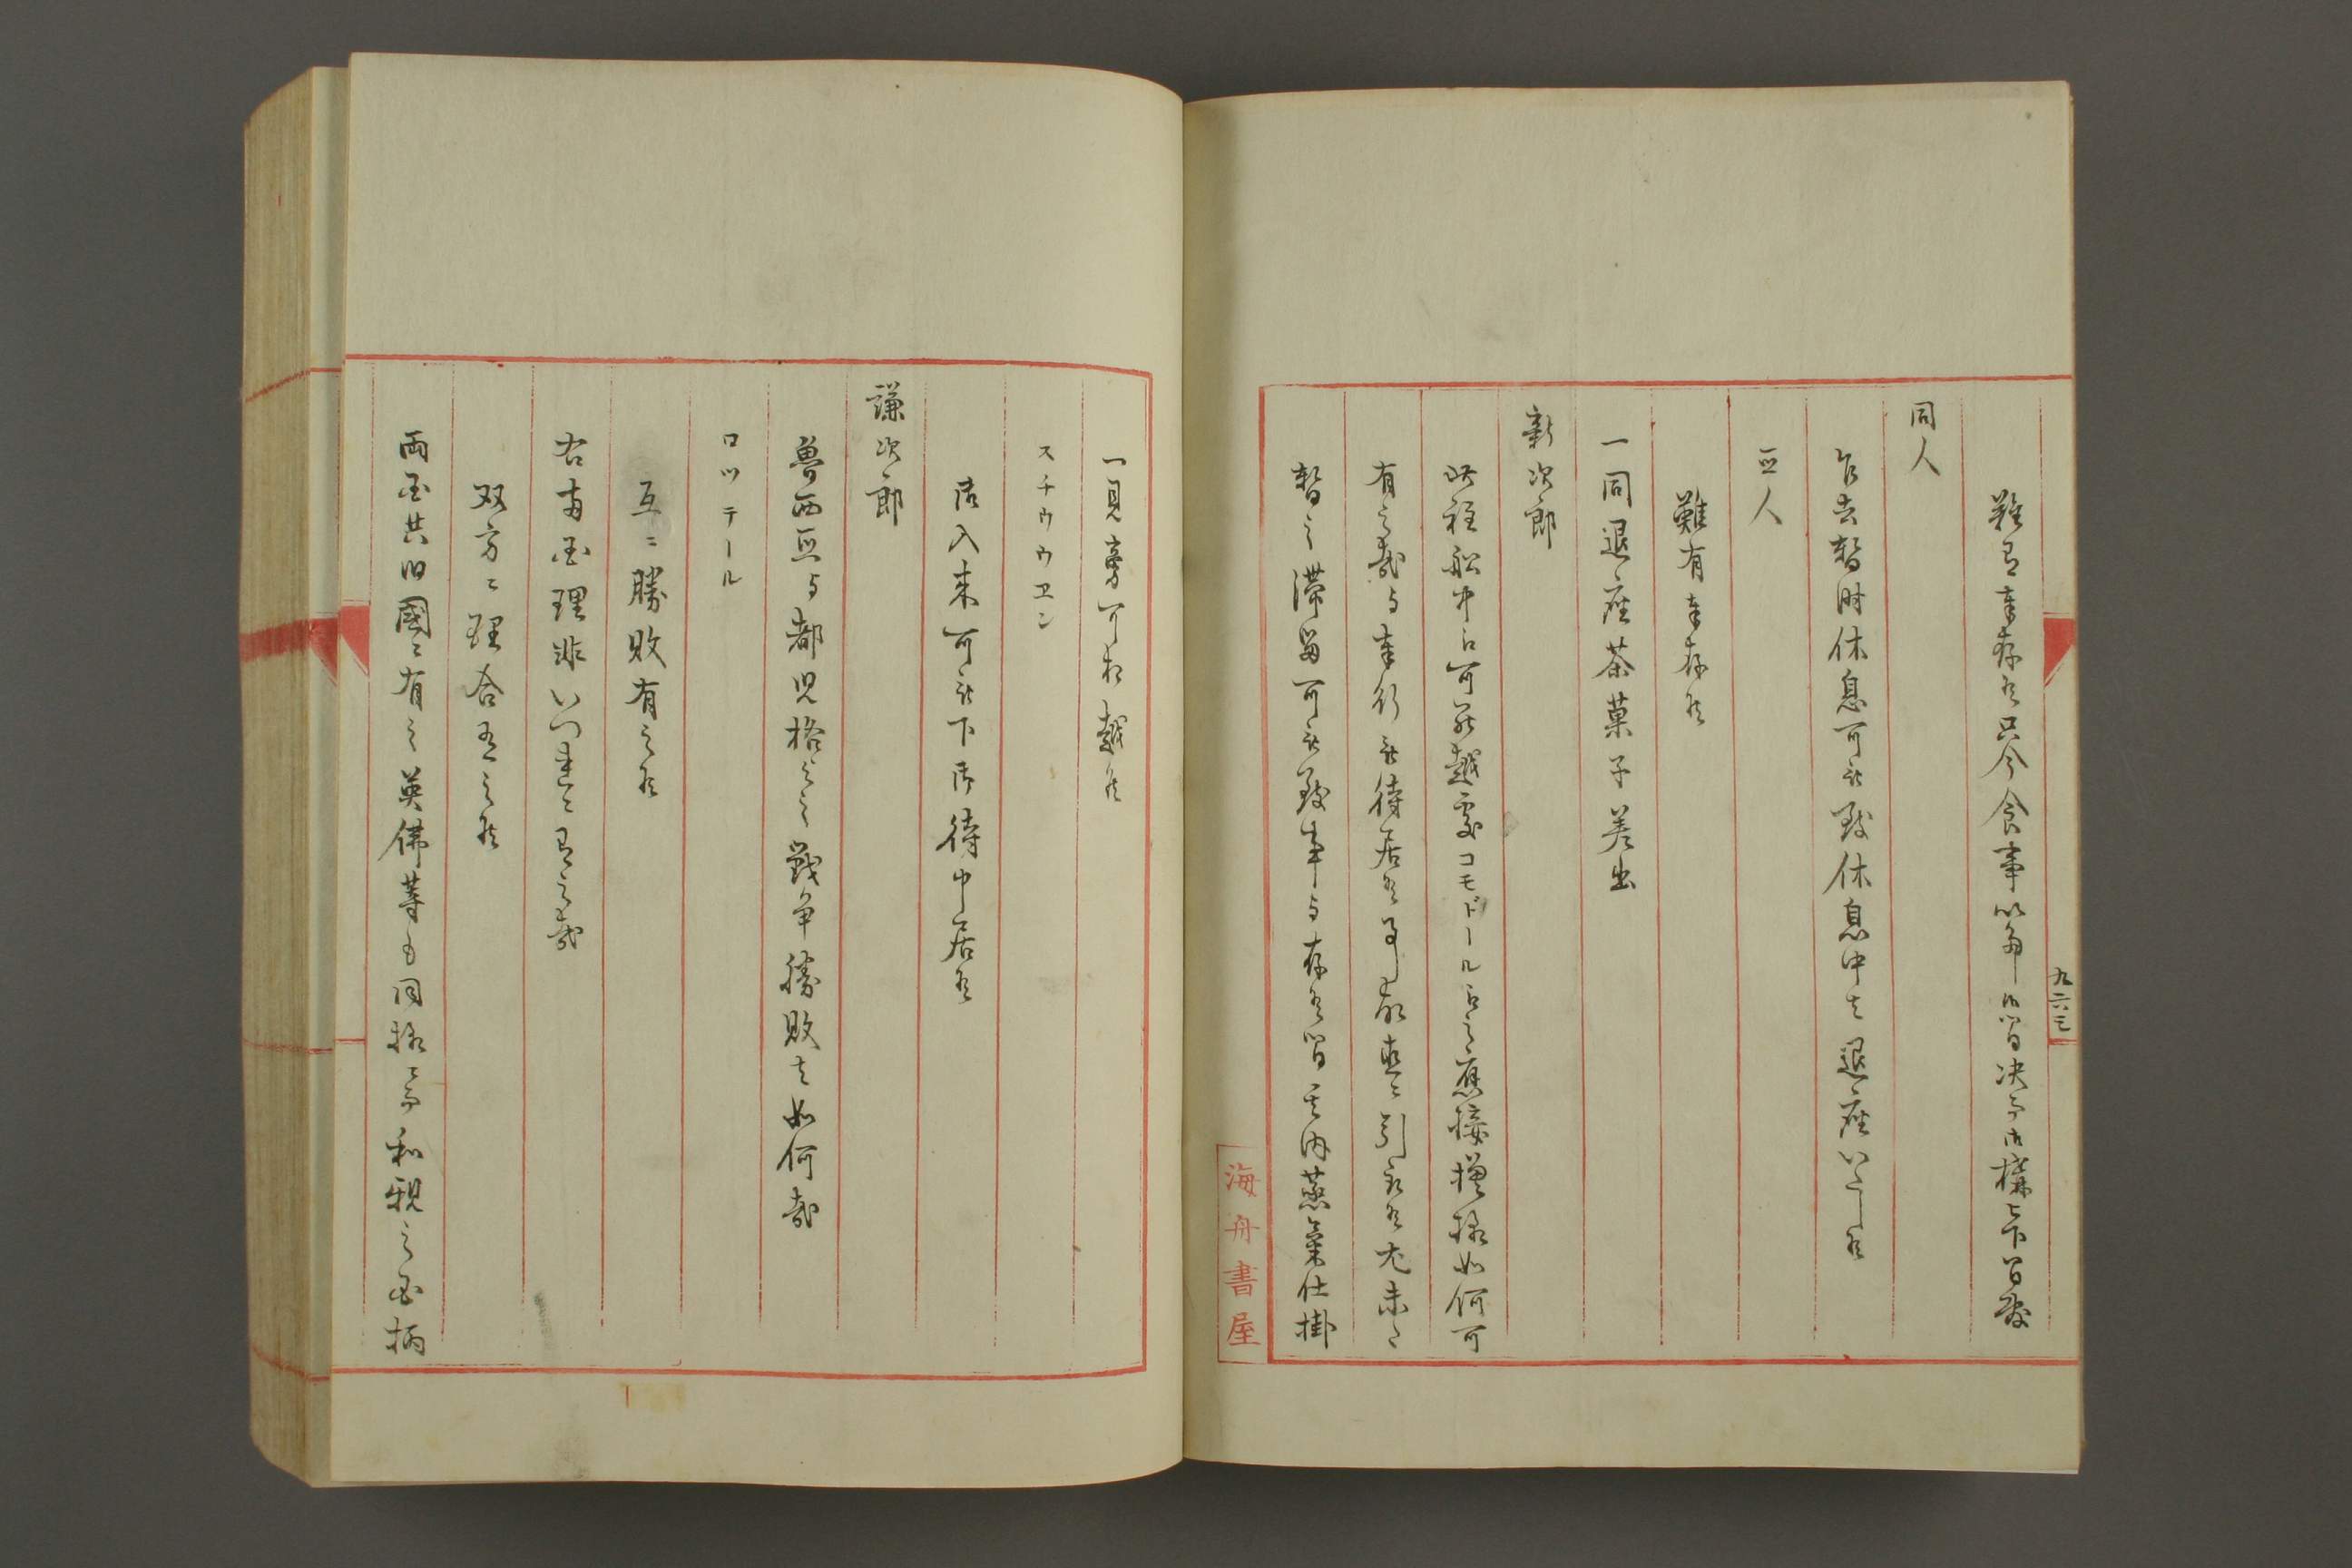 難有奉存候只今食事以多分御皆決而御構被下間敷
同人
乍去暫時休息可被致休息中者退座いたし候
亞人
難有奉存候
一同退座茶菓子差出
新次郎
此程船中ニ可罷越處コモドール之應接模様如何可
有之哉与奉行被待居候事故直ニ引取候尤未タ
暫之滞留可被致事与存候間其内蒸氣仕掛
九六三
海舟書屋
一見旁可相越候
スチウウヱン
御入来可被下御待申居候
謙次郎
魯西亞与都児格之戦争勝敗者如何哉
ロツテール
互ニ勝敗有之候
右両国理非いつ連ニ有之哉
双方ニ理合有之候
両国共旧國ニ有之英佛等も同様ニ而和親之国柄